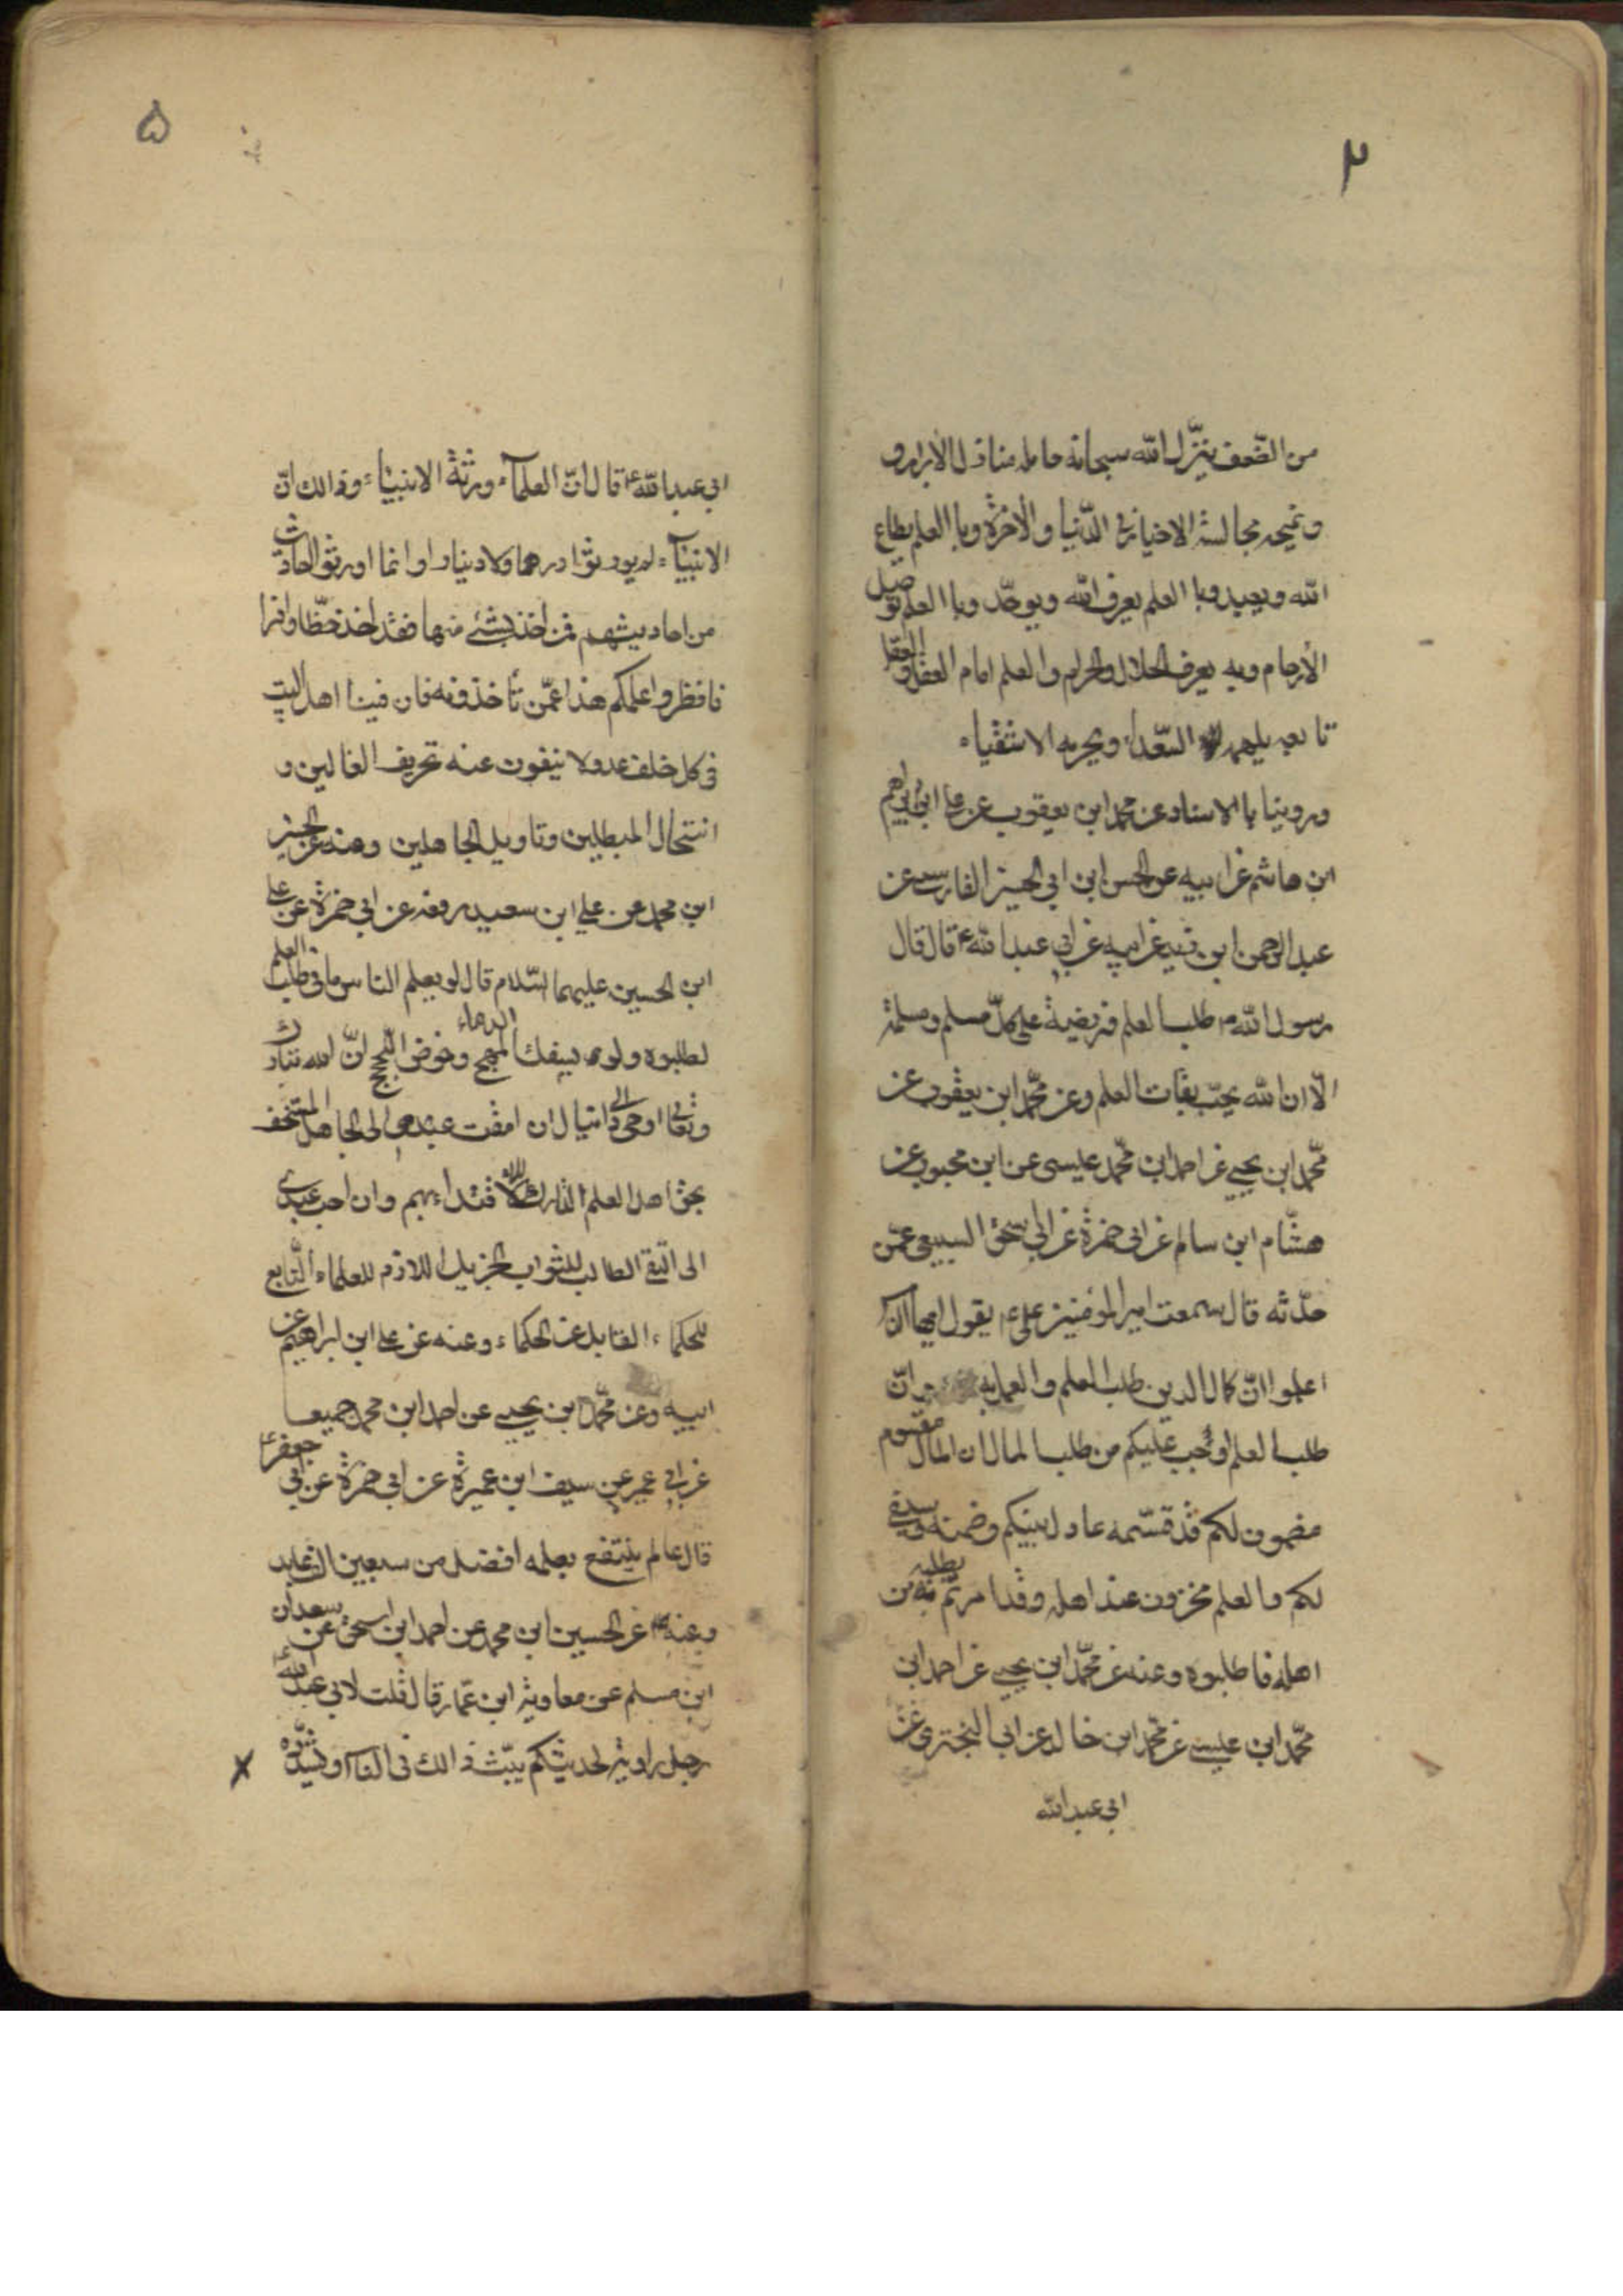 ٢
من الضعف ينزل الله سبحانه حامله منازل الابرار و
و يمنحه مجالسة الاخيار في الدنيا والاخرة وبا العلم يطاع
الله ويعبد وبا العلم يعرف الله ويوحد وبا العلم توصيل
الأرحام وبه يعرف الحلال والحرام والعلم امام العقل و العقل
تابعه يلهمه السعداء ويحرمه الاشقياء
وروينا با الاسناد عن محمد ابن يعقوب عن علي ابن ابراهيم
ابن هاشم عن ابيه عن الحسن ابن ابي الحسين الفارسي عن
عبد الرحمن ابن زيد عن ابيه عن ابي عبد الله ع قال قال
رسول الله ص طلب العلم فريضة على كل مسلم ومسلمة
الّا ان الله يحب بغات العلم وعن محمد ابن يعقوب عن
محمد ابن يحيى عن احمد ابن محمد عيسى عن ابن محبوب عن
هشام ابن سالم عن ابي حمزة عن ابي اسحق السبيعي عمن
حدثه قال سمعت امير المؤمنين علي ع يقول ايها الناس
اعلموا ان كمال الدين طلب العلم والعمل به وان
طلب العلم اوجب عليكم من طلب المال ان المال مقسوم
مضمون لكم قد قسمه عادل بينكم وضمنه وسيفي
لكم والعلم مخزون عند اهله وقد امرتم بطلبه من
اهله فاطلبوه وعنه عن محمد ابن يحيى عن احمد ابن
محمد ابن عيسى عن محمد ابن خالد عن ابي البختري عن
ابي عبد الله
٥
ابي عبد الله ع قال ان العلماء ورثة الانبياء وذالك ان
الانبياء لم يورثوا درهما ولا دينارا وانما اورثوا احاديث
من احاديثهم فمن اخذ بشئ منها فقد اخذ حظا وافرا
فانظروا علمكم هذا عمن تأخذونه فان فينا اهل البيت
في كل خلف عدولا ينفون عنه تحريف الغالين و
انتحال المبطلين وتاويل الجاهلين وعنه عن الحسين
ابن محمد عن علي ابن سعيد رفعه عن ابي حمزة عن علي
ابن الحسين عليهما السلام قال لو يعلم الناس ما في طلب العلم
لطلبوه ولو بسفك المهج وخوض اللجج ان الله تبارك
وتعالى اوحى الى دانيال ان امقت عبيدي الى الجاهل المستخف
بحق اهل العلم التارك للاقتداء بهم وان احب عبيدي
الى التقي الطالب للثواب الجزيل اللازم للعلماء التابع
للحكماء القابل عن الحكماء وعنه عن علي ابن ابراهيم عن
ابيه وعن محمد ابن يحيى عن احمد ابن محمد جميعا
عن ابي عمير عن سيف ابن عميرة عن ابي حمزة عن ابي جعفر ع
قال عالم ينتفع بعلمه افضل من سبعين الف عابد
وعنه عن الحسين ابن محمد عن احمد ابن اسحق عن سعدان
ابن مسلم عن معاوية ابن عمار قال قلت لابي عبد الله ع
رجل راوية لحديثكم يبث ذالك في الناس ويشدده